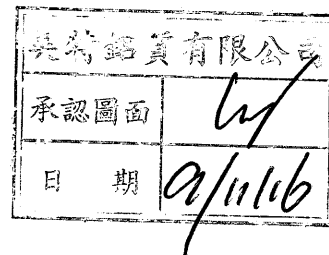 鋁質有限公司
承認圖面
日 期 91/11/16